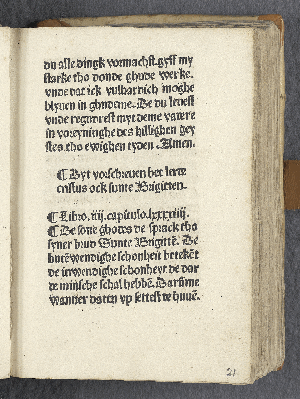 du alle dingk vormachst. gyff my
starke tho donde ghude werke.
vnde dat ick vulhardich moghe
blyuen in ghudeme. De du leuest
vnde regnerest myt deme vadere
in voreyninghe des hillighen gey
stes tho ewighen tyden. Amen.
¶ Hyr vorscreuen het
cristus ock sunte Birgitten.
¶ Libro. iiij. capitulo. lxxxviiij.
¶ De sone ghodes de sprack tho
syner brud Sunte Birgittē. De
butēwendighe schonheit betekēt
de inwendighe schonheyt de dar
de minsche schal hebbē. Darūme
wanner datu vp settest de huuē.
21